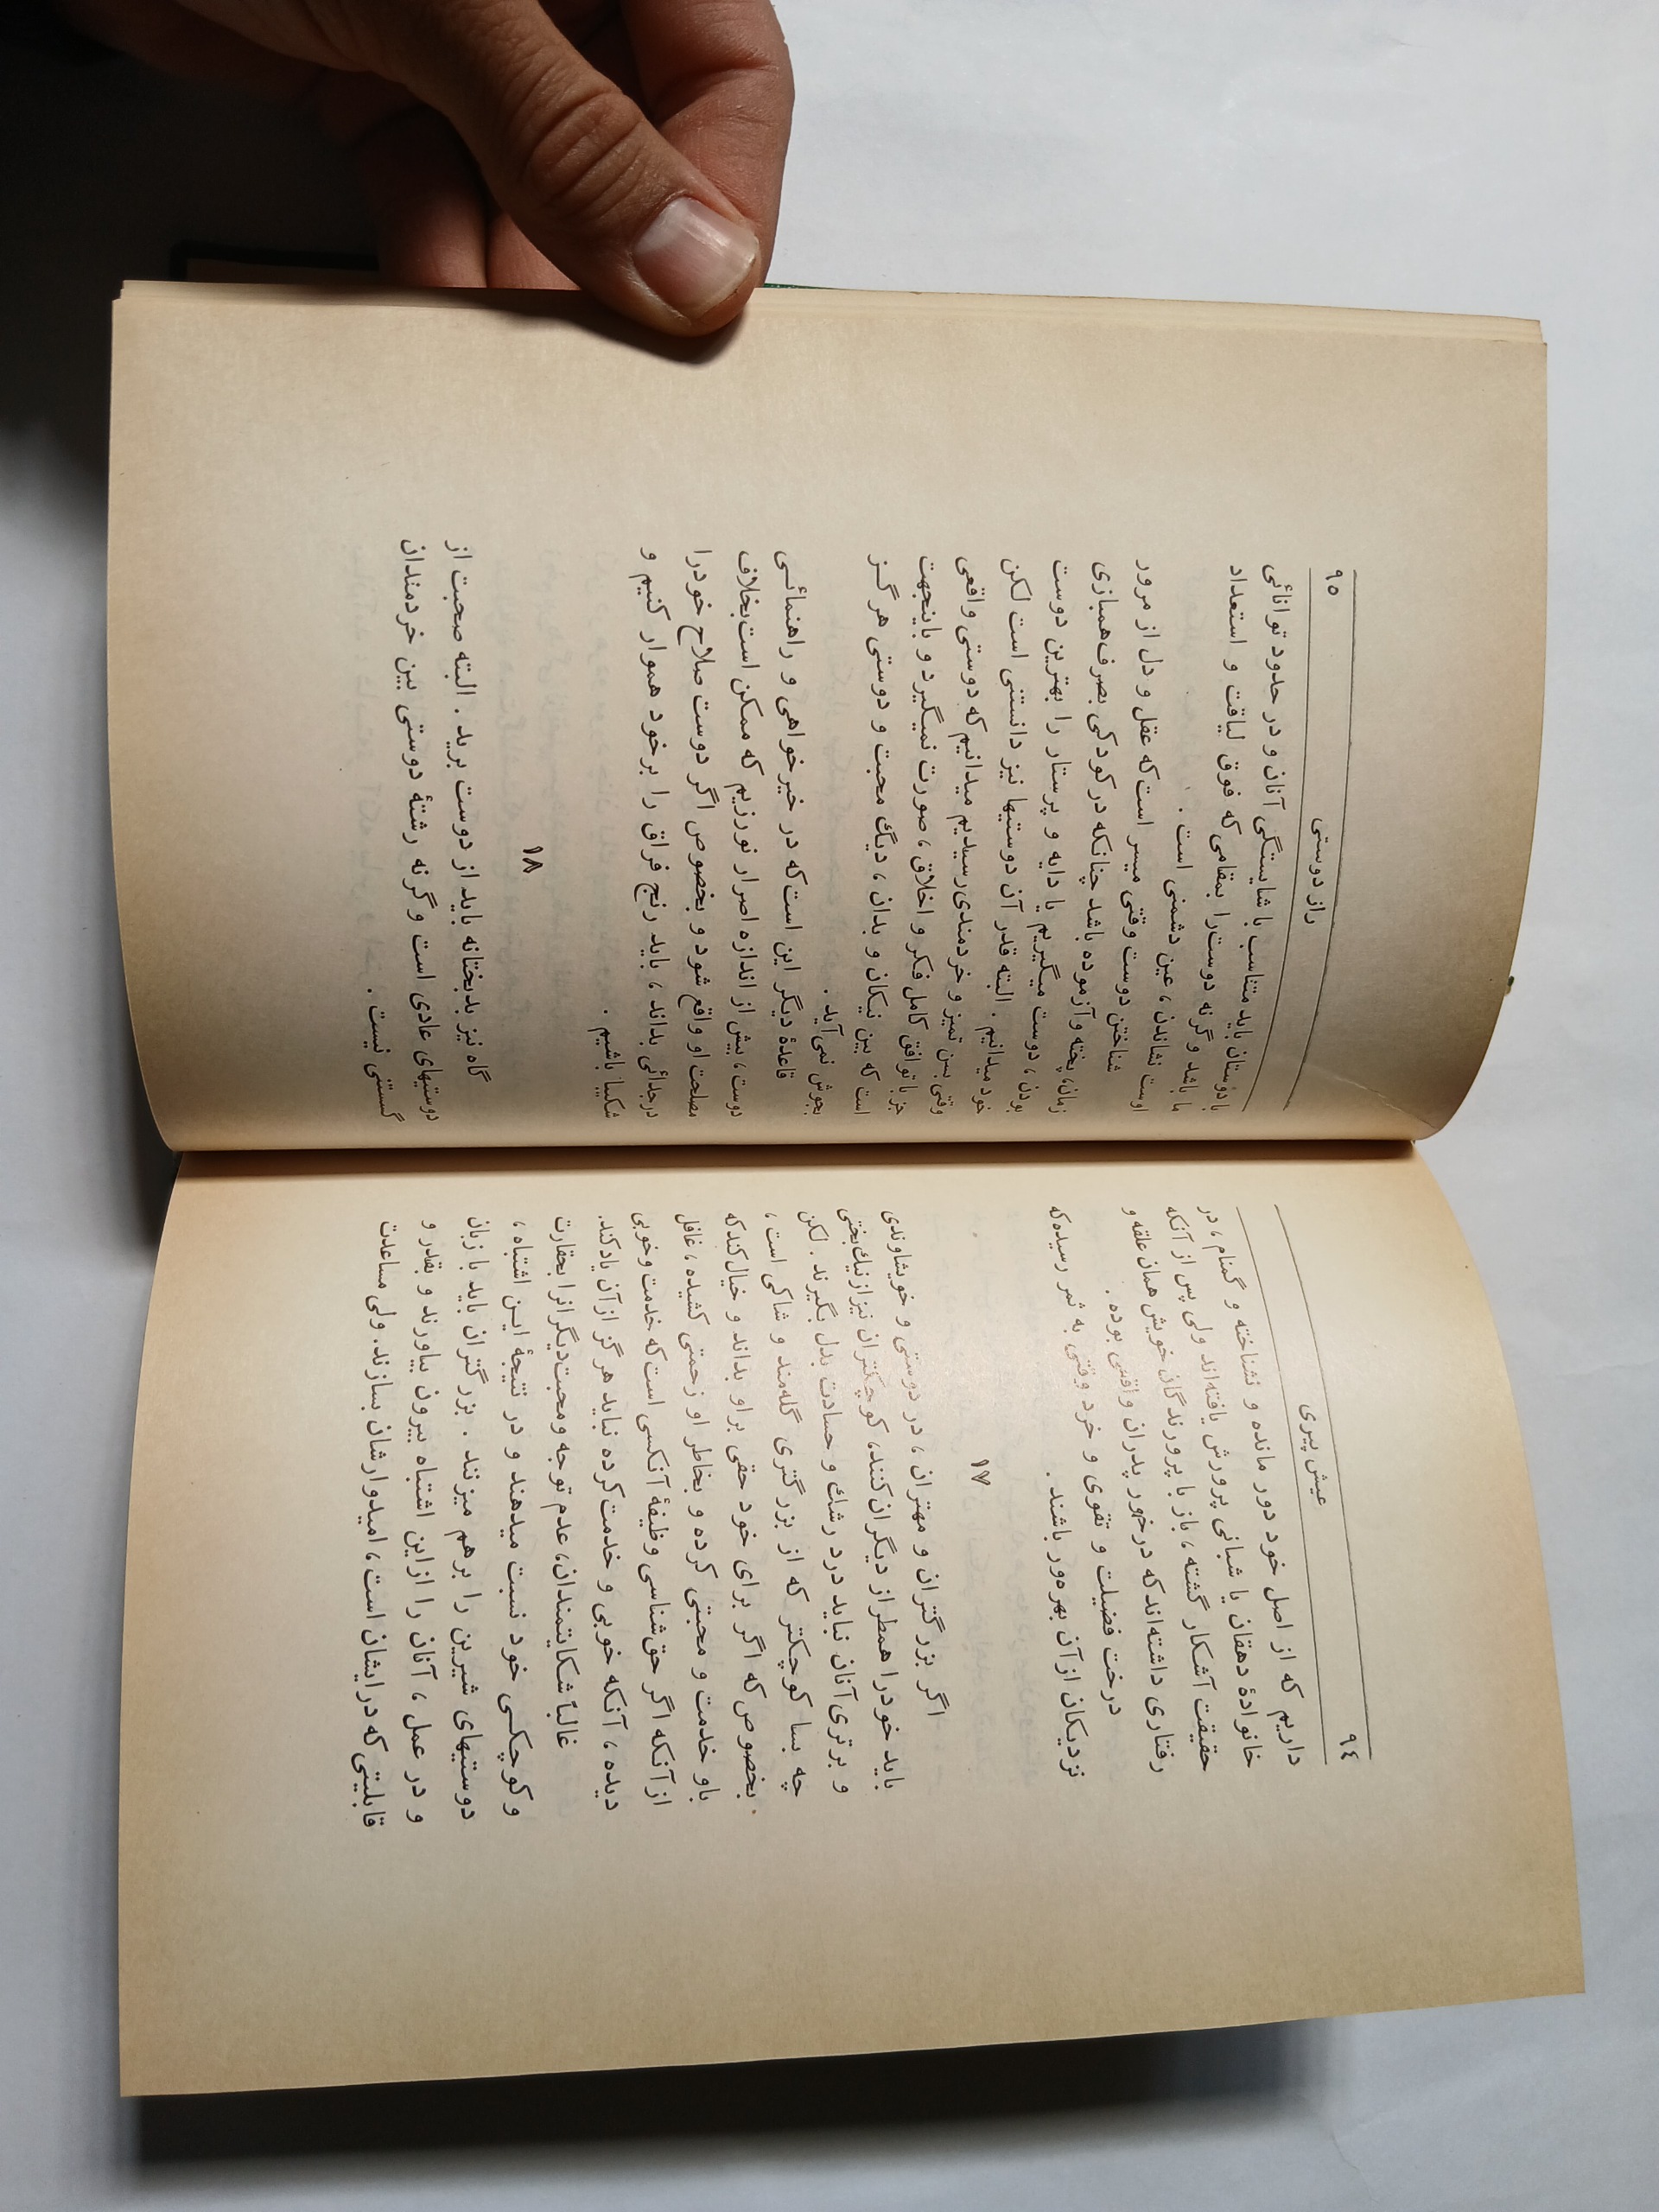 ۹٤
عیش پیری
داریم که از اصل خود دور مانده و نشناخته و گمنام ، در
خانوادهٔ دهقان یا شبانی پرورش یافته‌اند ولی پس از آنکه
حقیقت آشکار گشته ، باز با پرورندگان خویش همان علقه و
رفتاری داشته‌اند که درخور پدران واقعی بوده .
درخت فضیلت و تقوی و خرد وقتی به ثمر رسیده که
نزدیکان ازآن بهره‌ور باشند .
۱۷
اگر بزرگتران و مهتران ، در دوستی و خویشاوندی
باید خودرا همطراز دیگران کنند، کوچکتران نیز ازنیك‌بختی
و برتری آنان نباید درد رشك و حسادت بدل بگیرند . لکن
چه بسا کوچکتر که از بزرگتری گله‌مند و شاکی است ،
بخصوص که اگر برای خود حقی براو بداند و خیال کند که
باو خدمت و محبتی کرده و بخاطر او زحمتی کشیده ، غافل
از آنکه اگر حق‌شناسی وظیفهٔ آنکسی است که خدمت وخوبی
دیده ، آنکه خوبی و خدمت کرده نباید هرگز ازآن یاد کند.
غالباً شکایتمندان، عدم توجه ومحبت دیگرانرا بحقارت
و کوچکی خود نسبت میدهند و در نتیجهٔ ایـن اشتباه ،
دوستیهای شیرین را برهم میزنند . بزرگتران باید با زبان
و در عمل ، آنان را ازاین اشتباه بیرون بیاورند و بقدر و
قابلیتی که درایشان است ، امیدوارشان بسازند. ولی مساعدت
۹۵
راز دوستی
با دوستان باید متناسب با شایستگی آنان و در حدود توانائی
ما باشد و گرنه دوست‌را بمقامی که فوق لیاقت و استعداد
اوست نشاندن، عین دشمنی است .
شناختن دوست وقتی میسر است که عقل و دل از مرور
زمان، پخته و آزموده باشد چنانکه در کودکی بصرف همبازی
بودن ، دوست میگیریم یا دایه و پرستار را بهترین دوست
خود میدانیم . البته قدر آن دوستیها نیز دانستنی است لکن
وقتی بسن تمیز و خردمندی رسیدیم میدانیم که دوستی واقعی
جز با توافق کامل فکر و اخلاق ، صورت نمیگیرد و باینجهت
است که بین نیکان و بدان ، دیگ محبت و دوستی هرگـز
بجوش نمی‌آید .
قاعدهٔ دیگر این است که در خیرخواهی و راهنمائـی
دوست ، بیش از اندازه اصرار نورزیم که ممکن است بخلاف
مصلحت او واقع شود و بخصوص اگر دوست صلاح خودرا
درجدائی بداند ، باید رنج فراق را برخود هموار کنیم و
شکیبا باشیم .
۱۸
گاه نیز بدبختانه باید از دوست برید . البته صحبت از
دوستیهای عادی است و گرنه رشتهٔ دوستی بین خردمندان
گسستنی نیست .